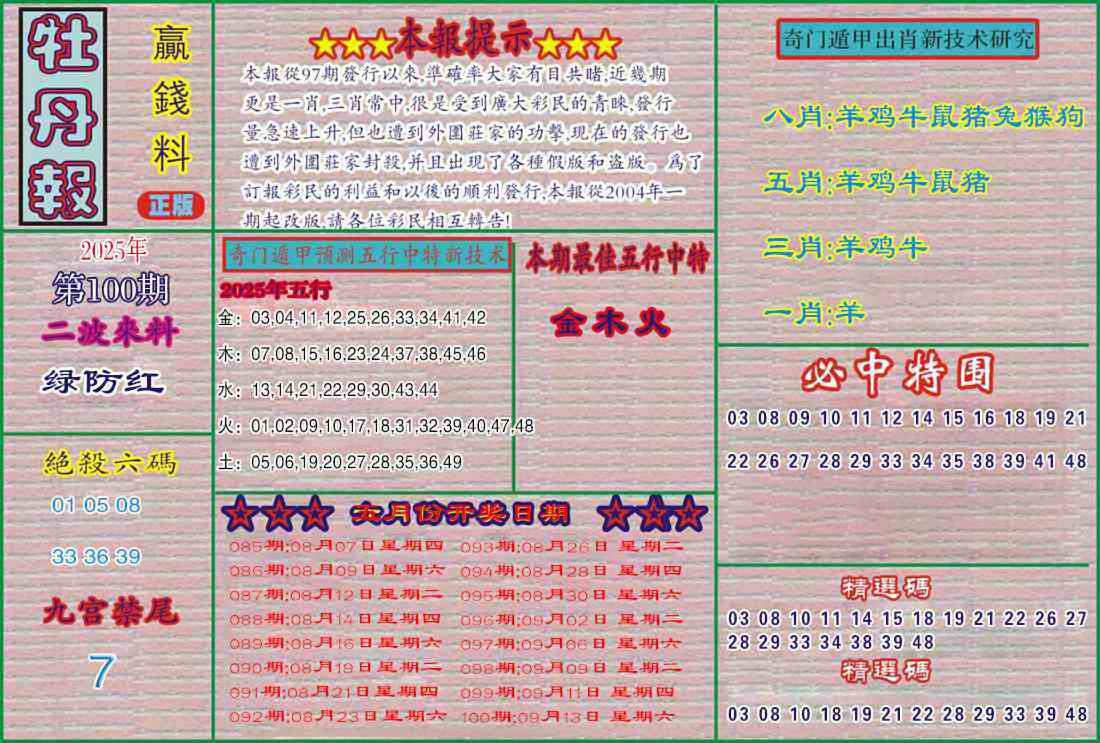 牡丹報
贏錢料
正版
★★★本報提示★★★
本報從97期發行以來,準確率大家有目共睹,近幾期
更是一肖,三肖常中,很是受到廣大彩民的青睞,發行
量急速上升,但也遭到外圍莊家的功擊,現在的發行也
遭到外圍莊家封殺,并且出現了各種假版和盗版。爲了
訂報彩民的利益和以後的順利發行,本報從2004年一
期起改版,請各位彩民相互轉告!
奇门遁甲出肖新技术研究
八肖:羊鸡牛鼠猪兔猴狗
五肖:羊鸡牛鼠猪
三肖:羊鸡牛
一肖:羊
2025年
第100期
二波來料
绿防红
奇门遁甲预测五行中特新技术
2025年五行
金: 03,04,11,12,25,26,33,34,41,42
木: 07,08,15,16,23,24,37,38,45,46
水: 13,14,21,22,29,30,43,44
火: 01,02,09,10,17,18,31,32,39,40,47,48
土: 05,06,19,20,27,28,35,36,49
本期最佳五行中特
金木火
必中特围
03 08 09 10 11 12 14 15 16 18 19 21
22 26 27 28 29 33 34 35 38 39 41 48
絕殺六碼
01 05 08
33 36 39
九宫禁尾
7
☆☆☆ 六月份开奖日期 ☆☆☆
085期:08月07日星期四 093期:08月26日 星期二
086期:08月09日星期六 094期:08月28日 星期四
087期:08月12日星期二 095期:08月30日 星期六
088期:08月14日星期四 096期:09月02日 星期二
089期:08月16日星期六 097期:09月06日 星期六
090期:08月19日星期二 098期:09月09日 星期二
091期:08月21日星期四 099期:09月11日 星期四
092期:08月23日星期六 100期:09月13日 星期六
精選碼
03 08 10 11 14 15 18 19 21 22 26 27
28 29 33 34 38 39 48
精選碼
03 08 10 18 19 21 22 28 29 33 39 48